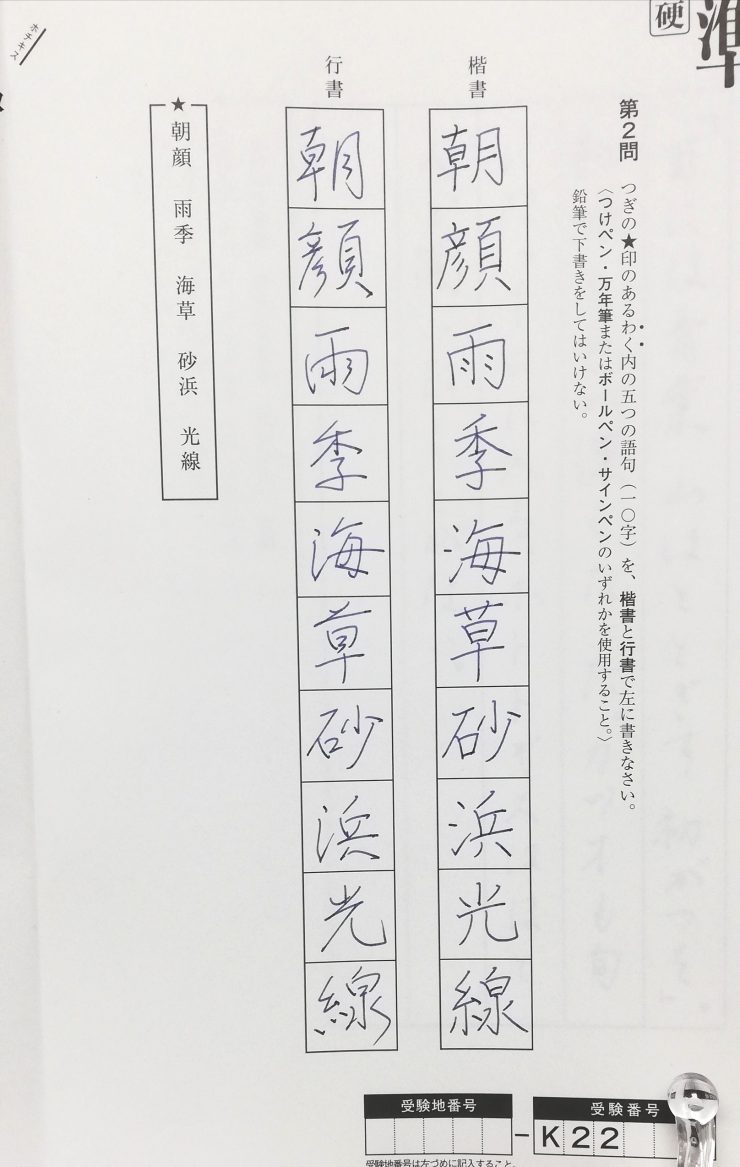 準
硬
第2問
つぎの★印のあるわく内の五つの語句（一〇字）を、楷書と行書で左に書きなさい。
〈つけペン・万年筆またはボールペン・サインペンのいずれかを使用すること。〉
鉛筆で下書きをしてはいけない。
楷書
朝顔雨季海草砂浜光線
行書
朝顔雨季海草砂浜光線
★
朝顔　雨季　海草　砂浜　光線
ホチキス
受験地番号
受験番号
－K22
受験地番号は左づめに記入すること。